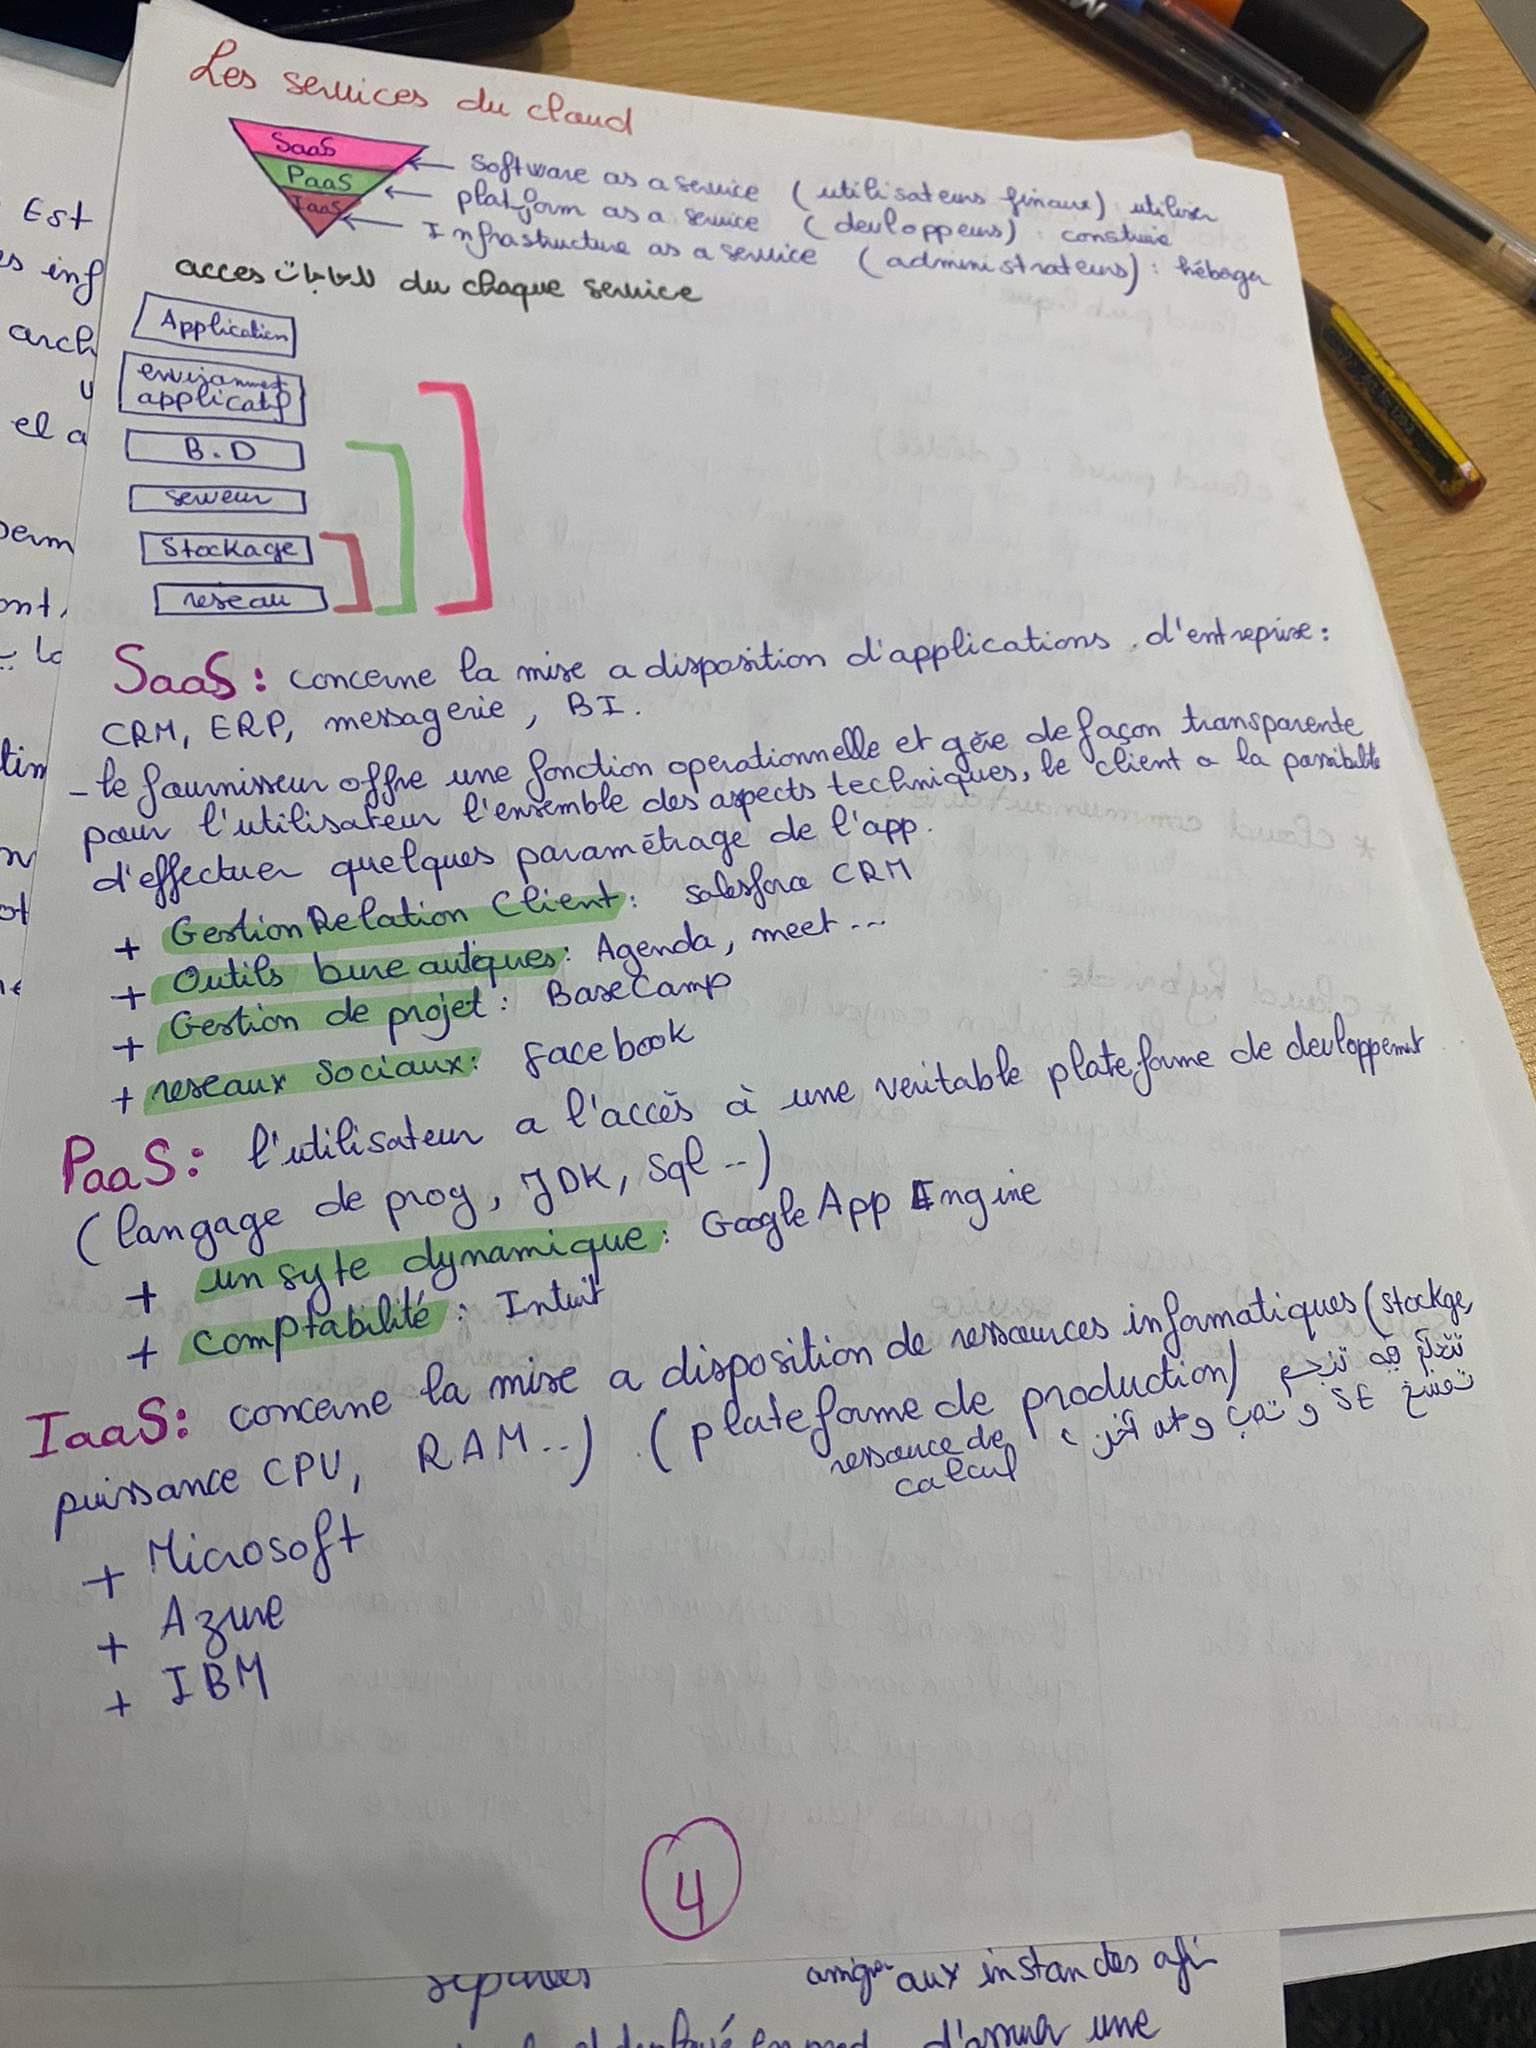 Les services du cloud
SaaS
PaaS
IaaS
software as a service (utilisateurs finaux) utiliser
platform as a service (devloppeurs) : constuie
Infrastructure as a service (administrateurs) : hébeger
acces للحاجات du chaque service
Application
applicatif
B.D
serveur
Stockage
reseau
SaaS : concerne la mise a disposition d'applications d'entreprise :
CRM, ERP, messagerie, BI.
- le fournisseur offre une fonction operationnelle et gére de façon transparente
pour l'utilisateur l'ensemble des aspects techniques, le client a la possibilité
d'effectuer quelques paramétrage de l'app.
+ Gestion Relation Client : salesforce CRM
+ Outils bureautiques : Agenda, meet ...
+ Gestion de projet : BaseCamp
+ reseaux sociaux : facebook
PaaS : l'utilisateur a l'accès à une veritable plateforme de devloppement
(langage de prog, JDK, sql ..)
+ un syte dynamique : Google App Engine
+ comptabilité : Intuit
IaaS : concerne la mise a disposition de ressources informatiques (stockge,
puissance CPU, RAM ..) (plateforme de production)
ressource de
calcul
+ Microsoft
+ Azure
+ IBM
4
Est
inf
arch
el a
aux instances
d'assurer une